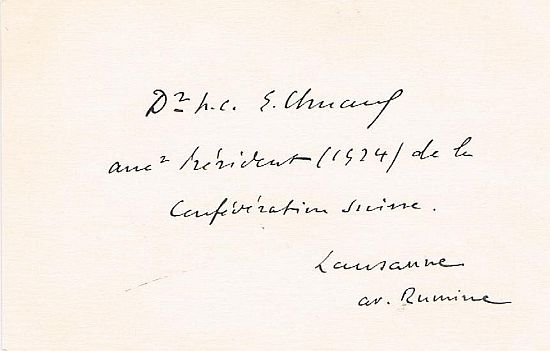 Dr h.c. E. Chuard
ancr Président (1924) de la
Confédération suisse.
Lausanne
av. Rumine